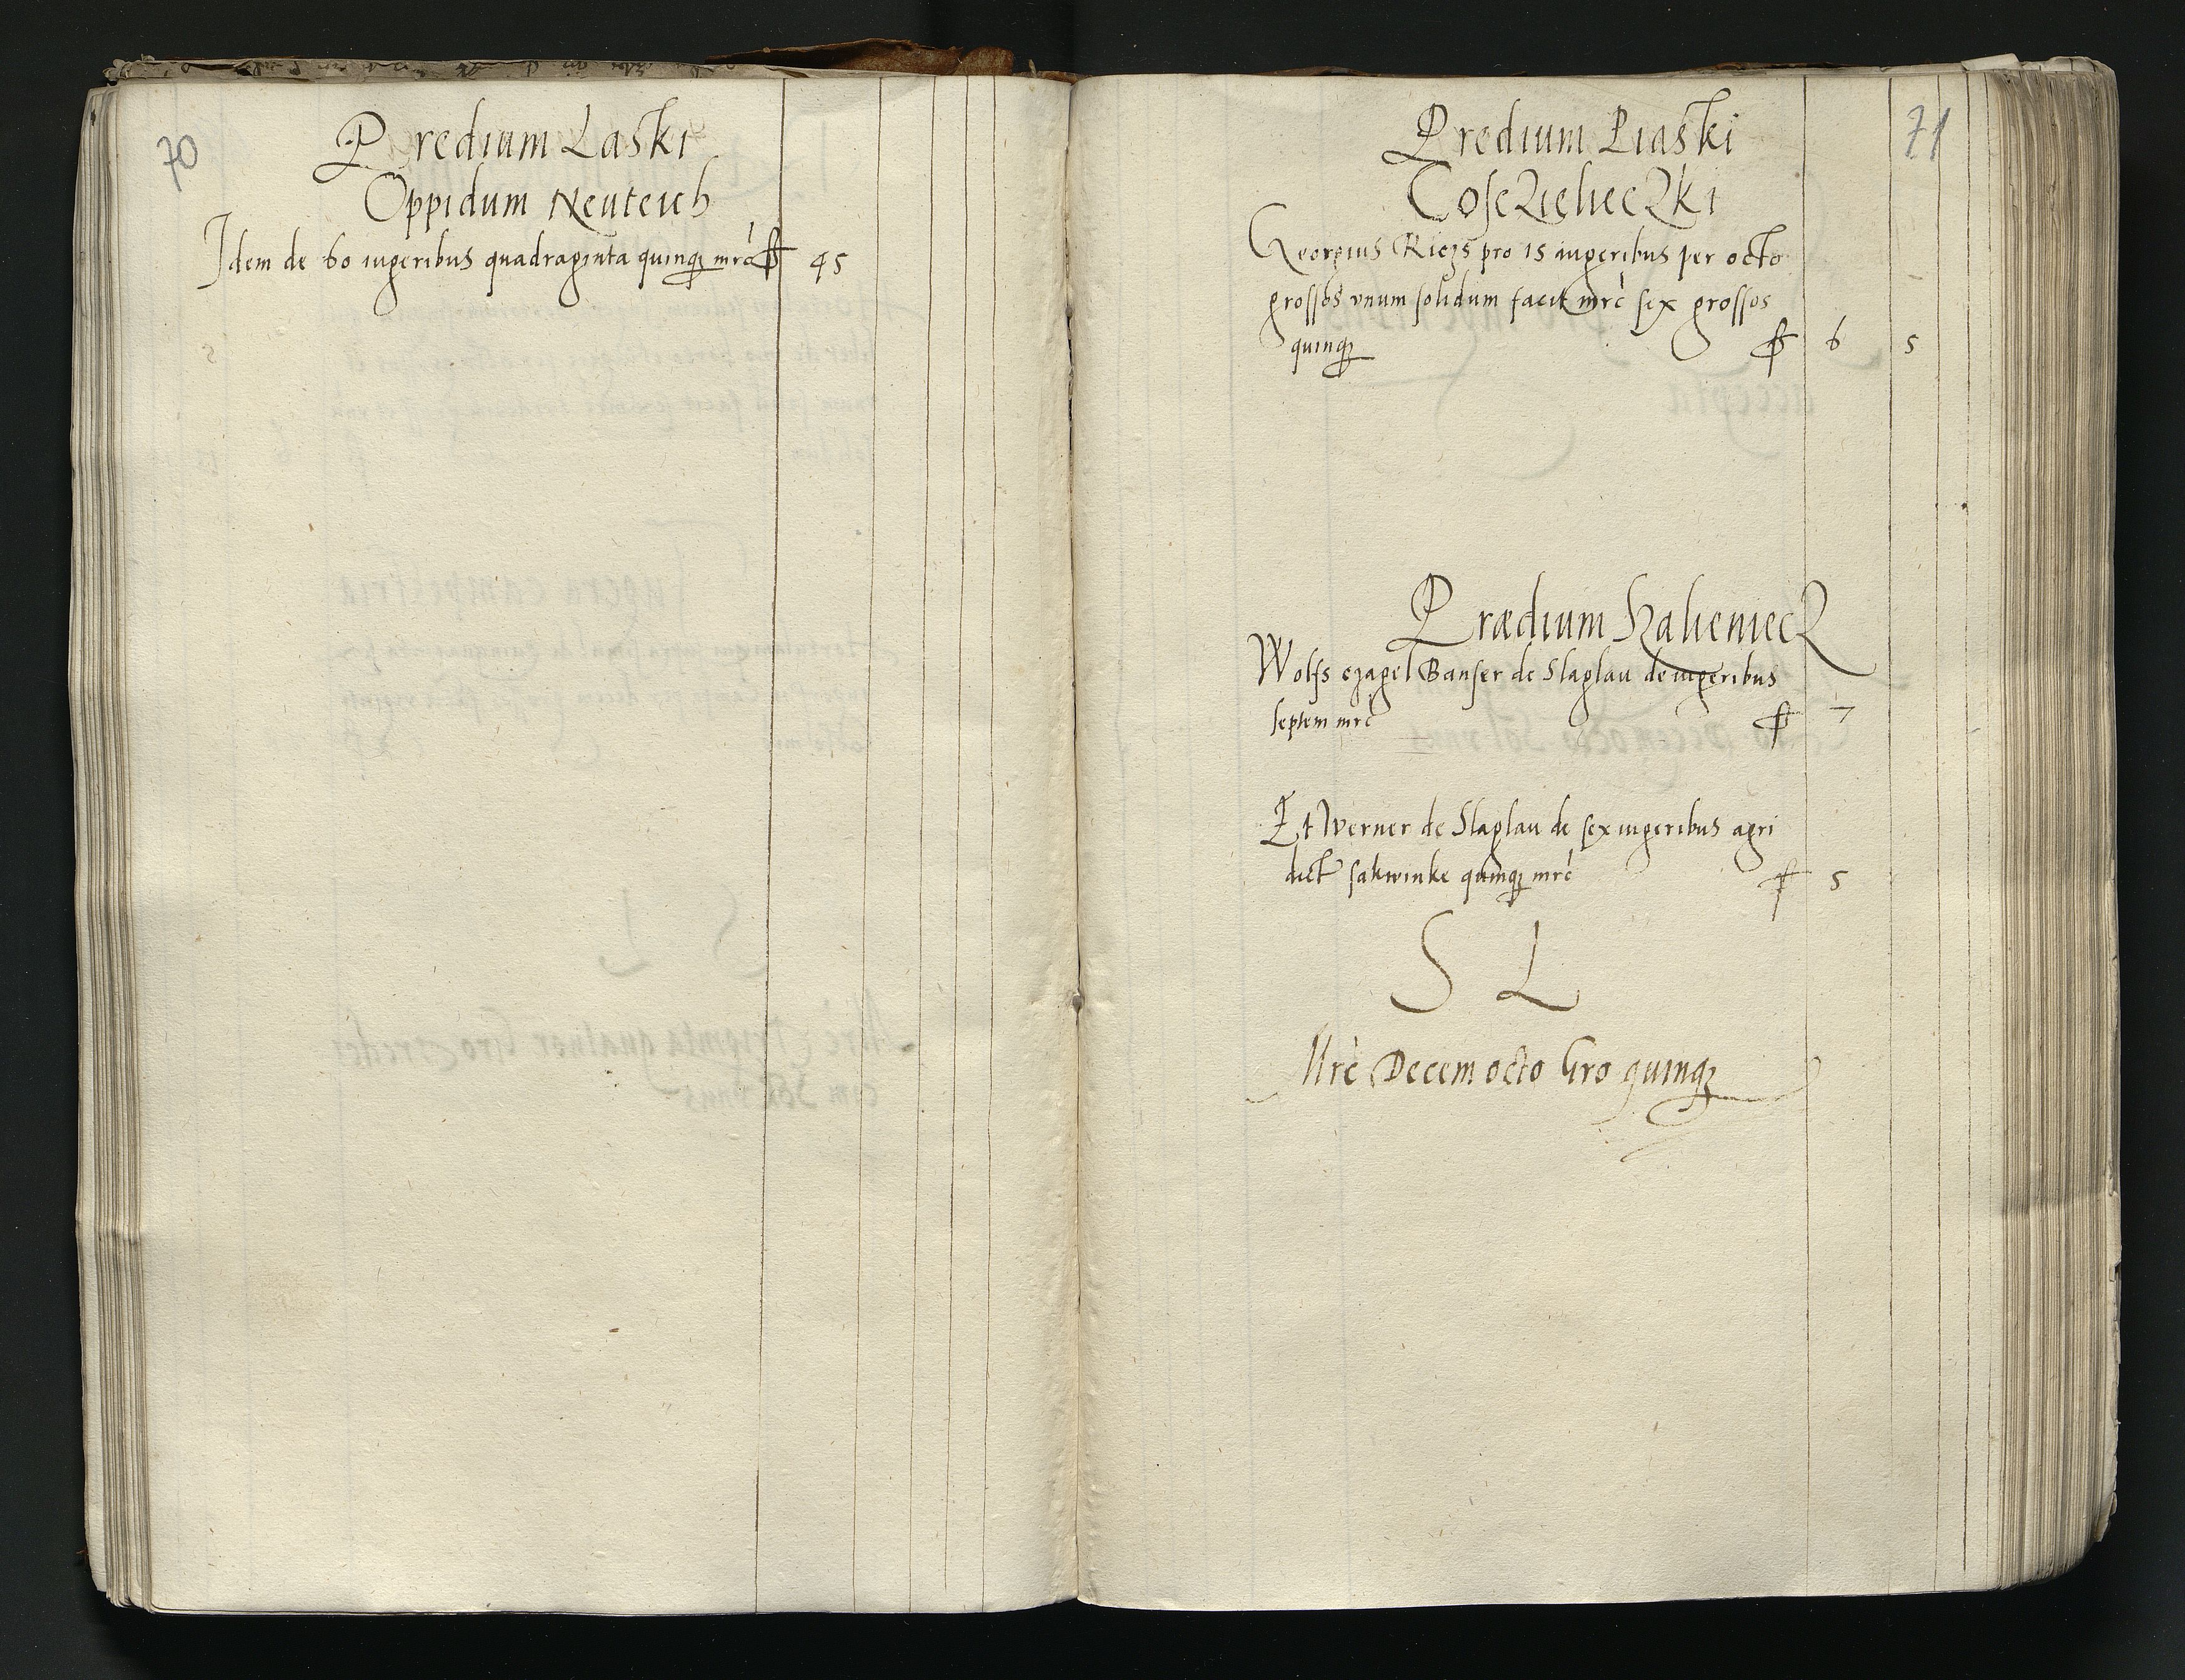 70
Predium Laski
Oppidum Neuteich
Idem de 60 iugeribus quadraginta quinqȝ mrć ꝭ 45
71
Predium Piaski
Cosczielieczki
Georgius Riegs pro 15 iugeribus per octo
grossos vnum solidum facit mrć sex grossos
quinqȝ 6 5
Prædium Kalieniecz
Wolfs czagel Banser de Slaglau de iugeribus
septem mrć 7
Et Werner de Slaglau de sex iugeribus agri
dict sakwinke quinqȝ mrć 5
S L
Mrć Decem octo Gro quinqȝ